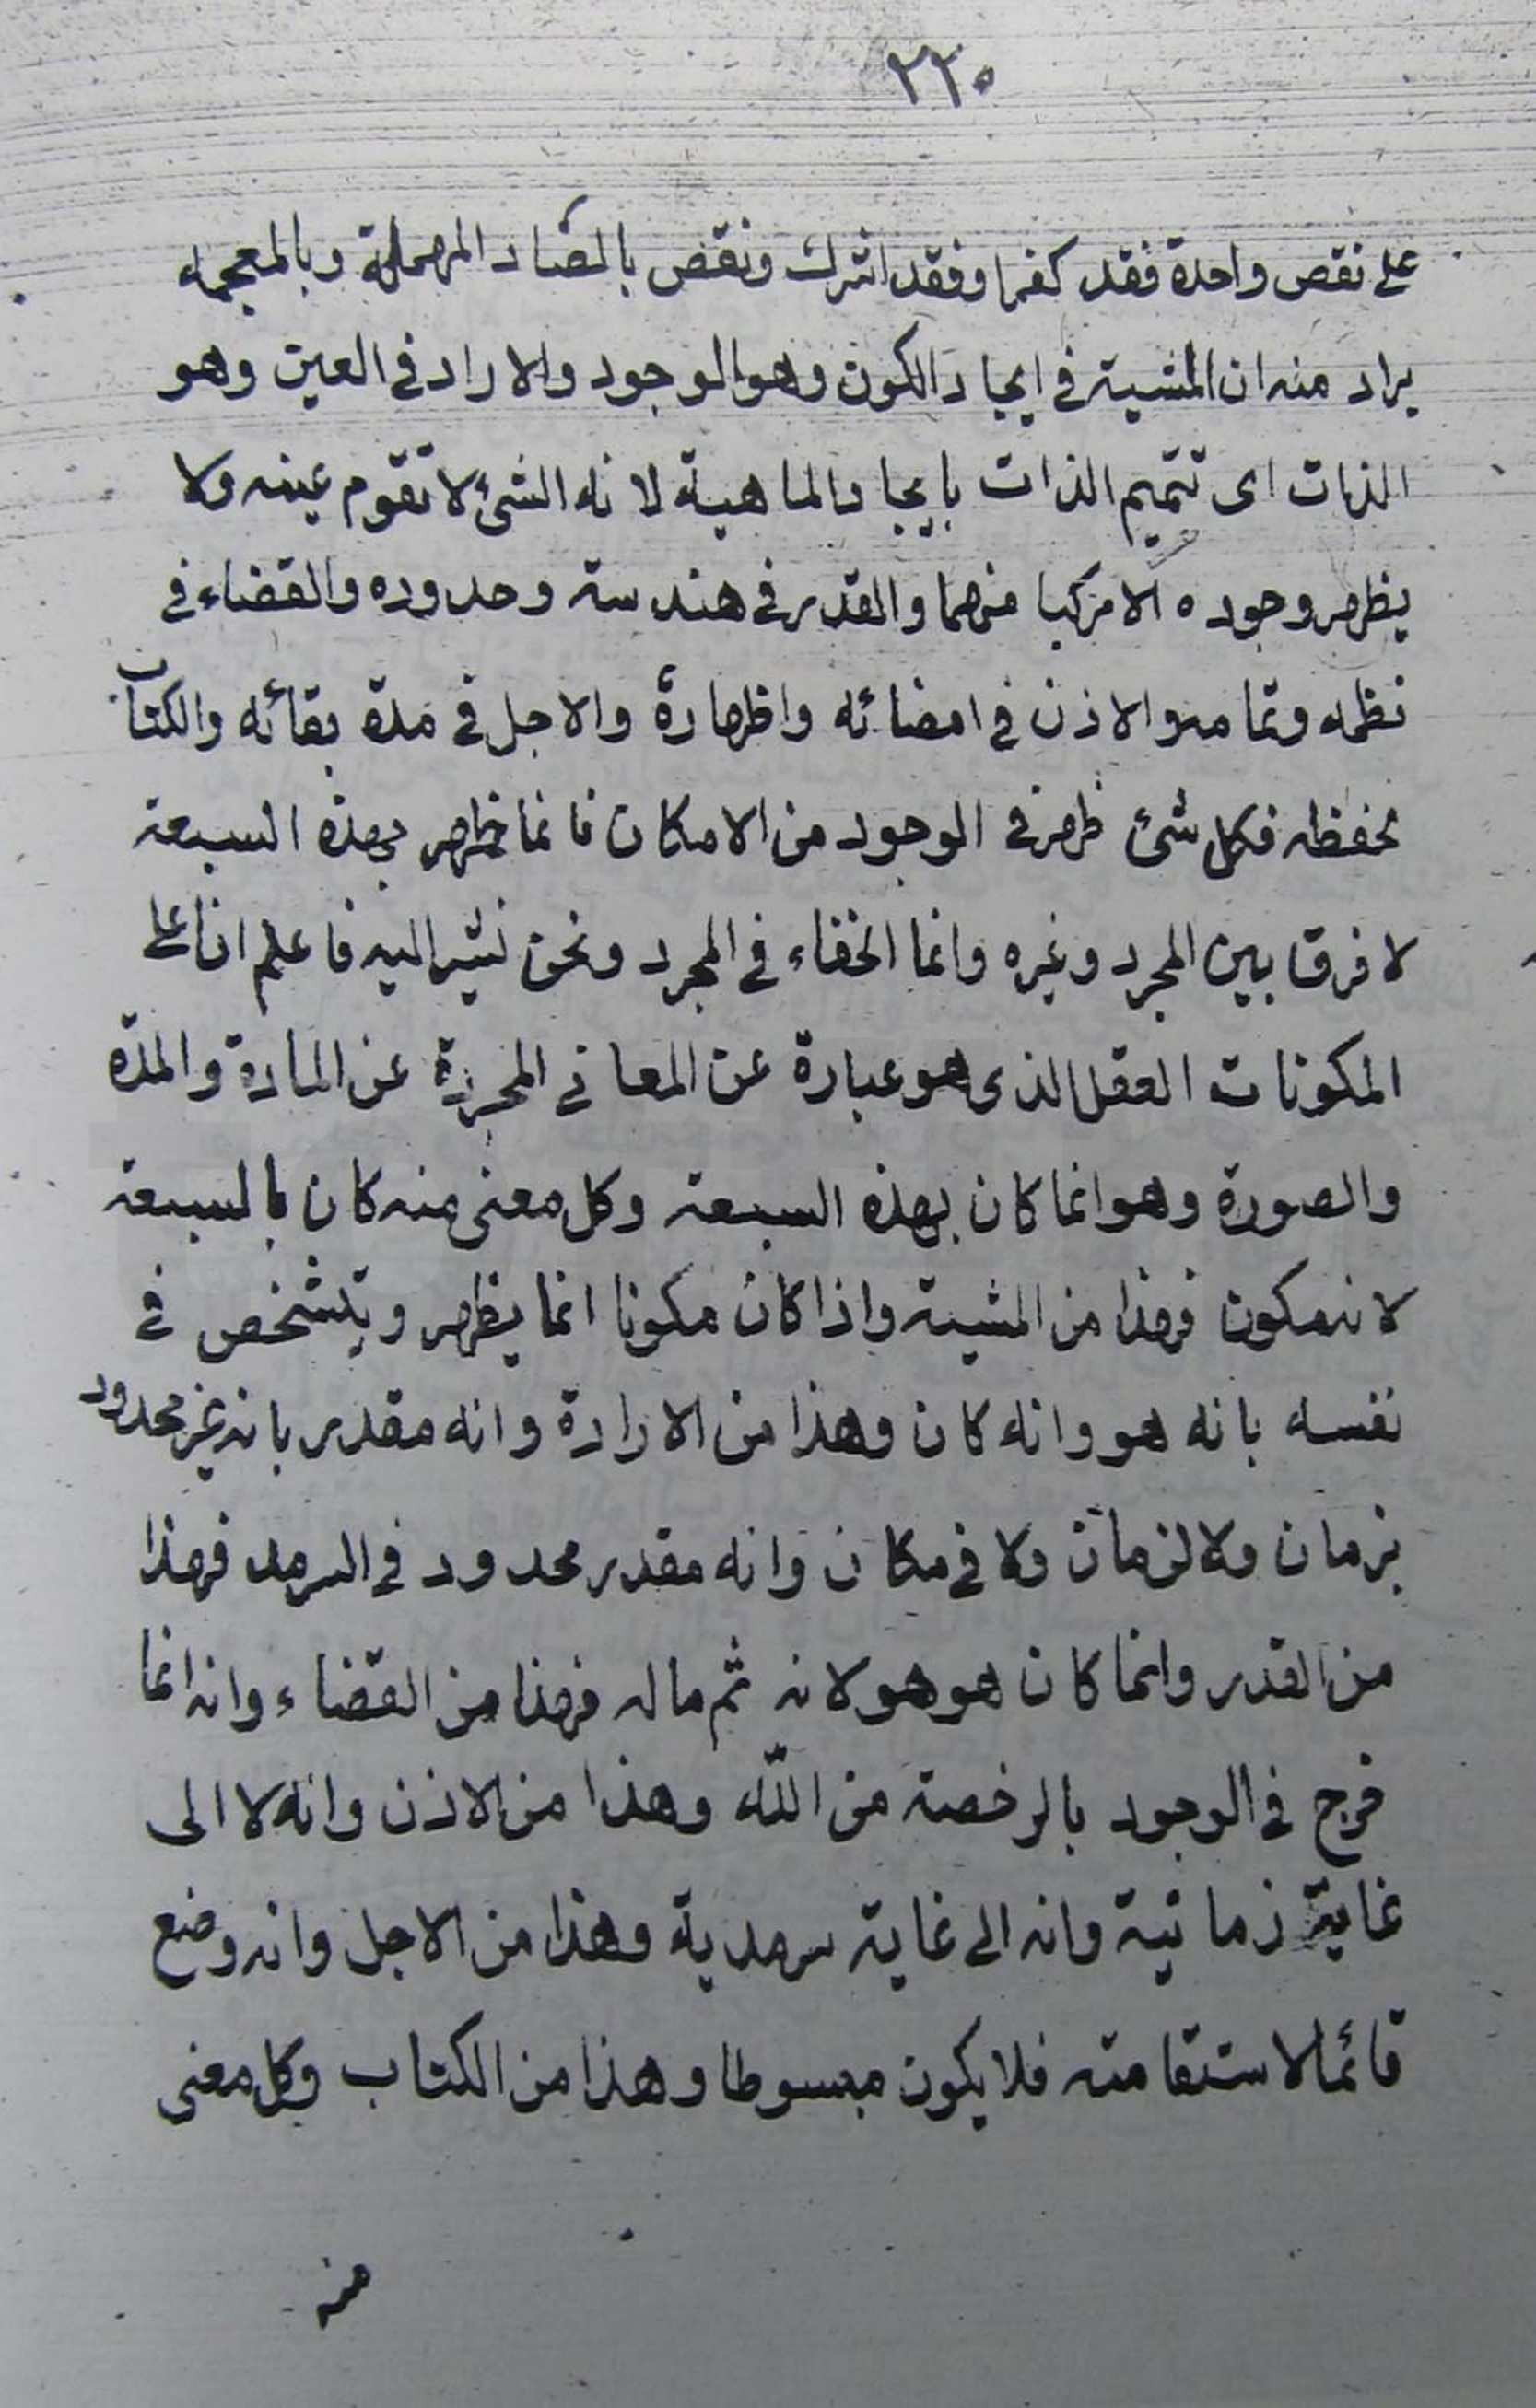 ٢٢٥
على نقص واحدة فقد كفر او فقد اشرك ونقص بالصاد المهملة وبالمعجمة
يراد منه ان المشية في ايجاد الكون وهو الوجود والاراد في العين وهو
الذات اى تتميم الذات بايجاد الماهية لانه الشئ لا تقوم عينه ولا
يظهر وجوده الا مركبا منهما والقدر في هندسته وحدوده والقضاء في
نظمه وتمامه والاذن في امضائه واظهاره والاجل في مدة بقائه والكتاب
بحفظه فكل شئ ظهر في الوجود من الامكان فانما ظهر بهذه السبعة
لا فرق بين المجرد وغيره وانما الخفاء في المجرد ونحن نشير اليه فاعلم ان اعلى
المكونات العقل الذى هو عبارة عن المعانى المجردة عن المادة والمدّة
والصورة وهو انما كان بهذه السبعة وكل معنى منه كان بالسبعة
لانه مكون فهذا من المشية واذا كان مكونا انما يظهر ويتشخص في
نفسه بانه هو وانه كان وهذا من الارادة وانه مقدر بانه غير محدود
بزمان ولا لزمان ولا في مكان وانه مقدر محدود في السرمد فهذا
من القدر وانما كان هو هو لانه ثم ماله فهذا من القضاء وانه انما
خرج في الوجود بالرخصة من اللّه وهذا من الاذن وانه لا الى
غاية زمانية وانه الى غاية سرمدية وهذا من الاجل وانه وضع
قائما لاستقامته فلا يكون مبسوطا وهذا من الكتاب وكل معنى
منه